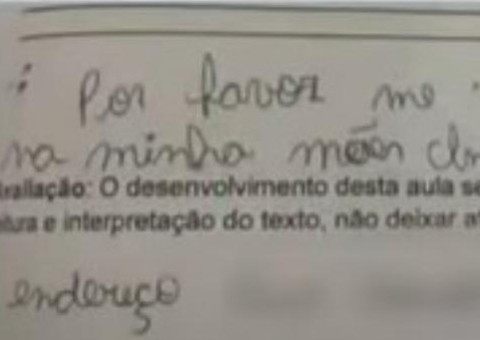 : Por favor me
na minha mães
Avaliação: O desenvolvimento desta aula se
e interpretação do texto, não deixar
endereço